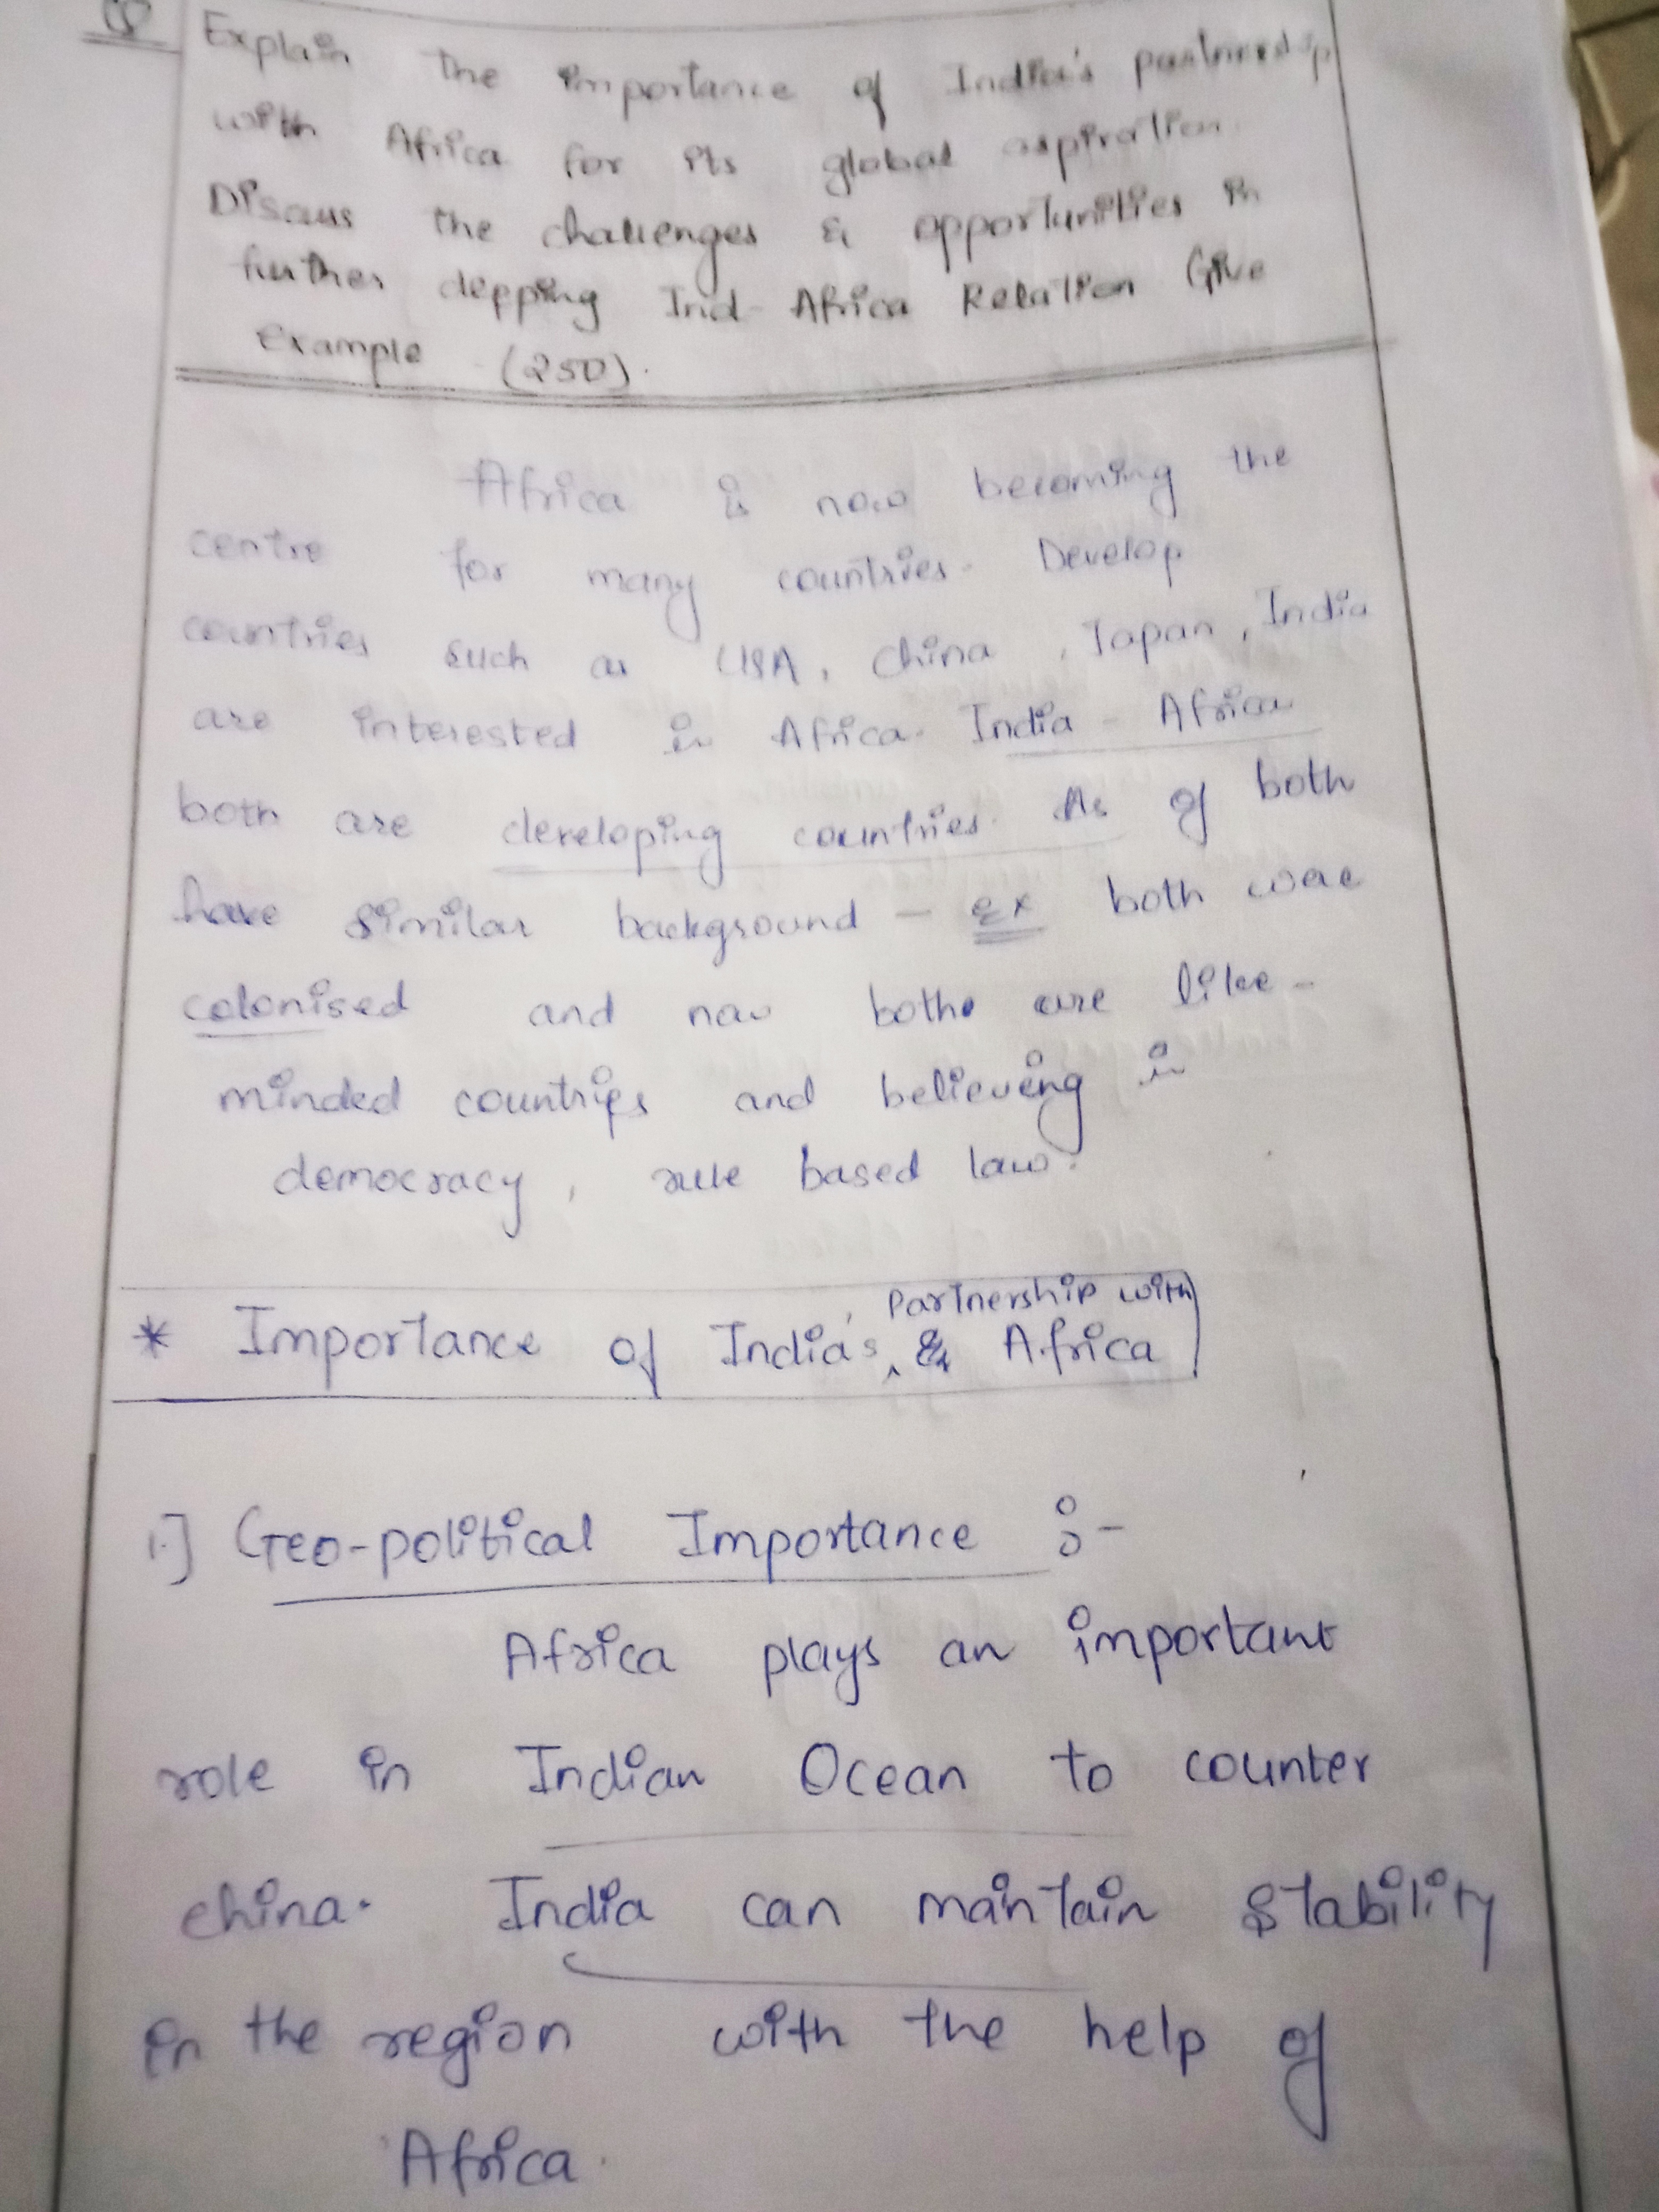 Q Explain the importance of India's partnership
with Africa for its global aspiration.
Discuss the challenges & opportunities in
further depping Ind-Africa Relation Give
example (250).
Africa is now becoming the
centre for many countries. Develop
countries such as USA, China, Japan, India
are interested in Africa. India - Africa
both are developing countries. As of both
have similar background - ex both were
colonised and now both are like-
minded countries and believing in
democracy, rule based law.
* Importance of India's, & partnership with Africa
1.] Geo-political Importance :-
Africa plays an important
role in Indian Ocean to counter
china. India can maintain stability
in the region with the help of
Africa.